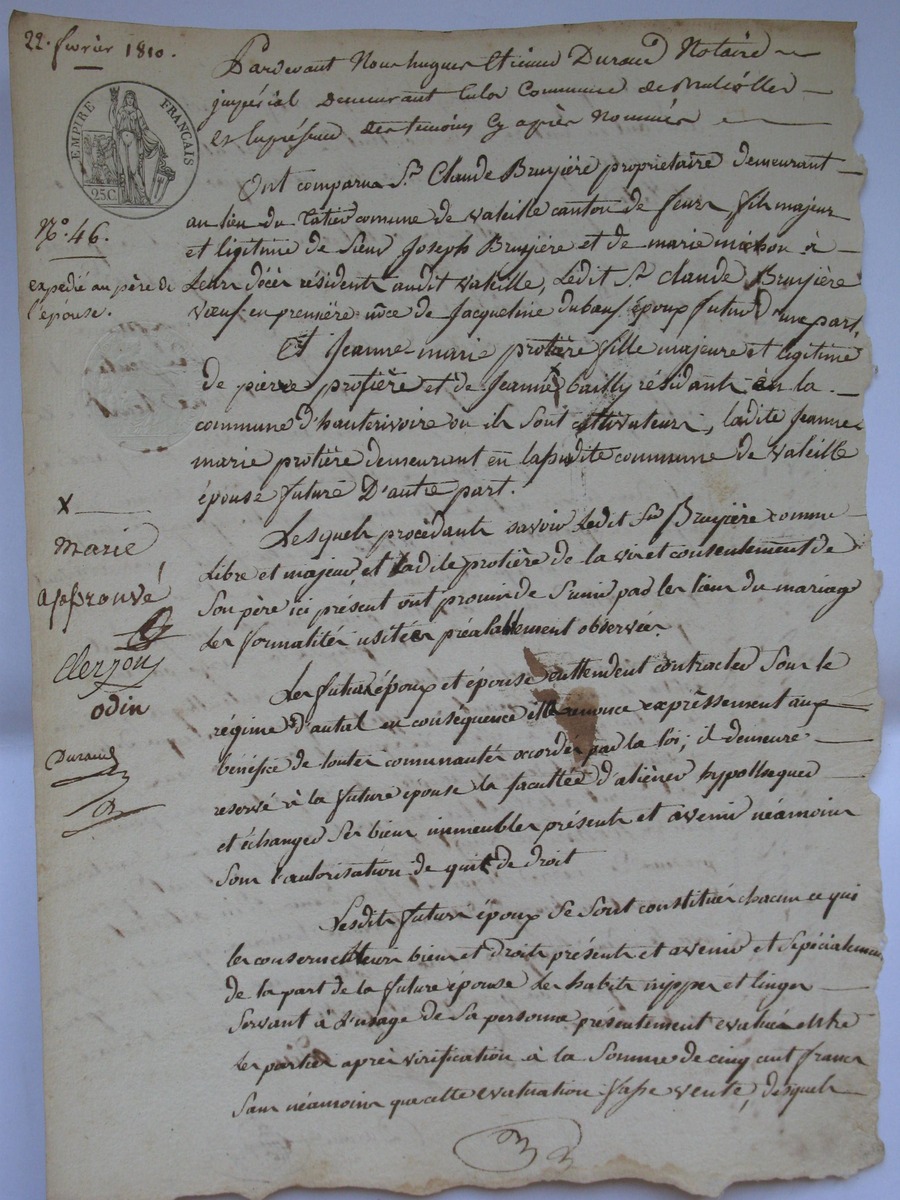 22. fevrier 1810.
EMPIRE FRANÇAIS
25C
N.º 46.
expedié au père de
l'épouse.
Pardevant Nous hugues Etienne Durand Notaire
impérial Demeurant Commune de
et la présence des temoins cy après Nommés
Ont comparu S.r Claude Bruyière proprietaire demeurant
au lieu du commune de valeille canton de feurs, fils majeur
et ligitime de Sieur Joseph Bruyière et de marie michon à
Leurs décès résidents audit valeille, Ledit S.r claude Bruyière
Vœuf en première nôce de Jacqueline dubœuf, époux futur D'une part,
Et Jeanne marie protière fille majeure et legitime
de pierre protière et de Jeanne bailly résidants en la
commune d'hauterivoire ou ils sont cultivateurs, ladite Jeanne
marie protière demeurant en la susdite commune de valeille
épouse future D'autre part.
Lesquels procédants savoir Ledit S.r Bruyière comme
Libre et majeur, et Ladite protière de la vis et consentement de
Son père ici présent ont promis de S'unir par les liens du mariage
Les formalités usitées préalablement observées.
Les futurs époux et épouse entendent contracter sous le
régime d'autal en conséquence ils renonce expréssement aux
bénéfice de toutes communauté acordés par la loi; il demeure
reservé à la future épouse la facultée d'aliéner hypothequer
et échanger Ses biens immeubles présents et avenir néamoins
Sous l'autorisation de qui de droit
Lesdits futurs époux Se sont constitués chacun ce qui
les conserne leurs biens et droits présents et avenir et Spécialement
de la part de la future épouse les habits nippes et linges
Servant à L'usage de Sa personne présentement evalués entre
les parties après vérification à la Somme de cinq cent francs
Sans néamoins que cette evaluation fasse vente, desquels
X
marie
approuvé
Clerzon
odin
Durand